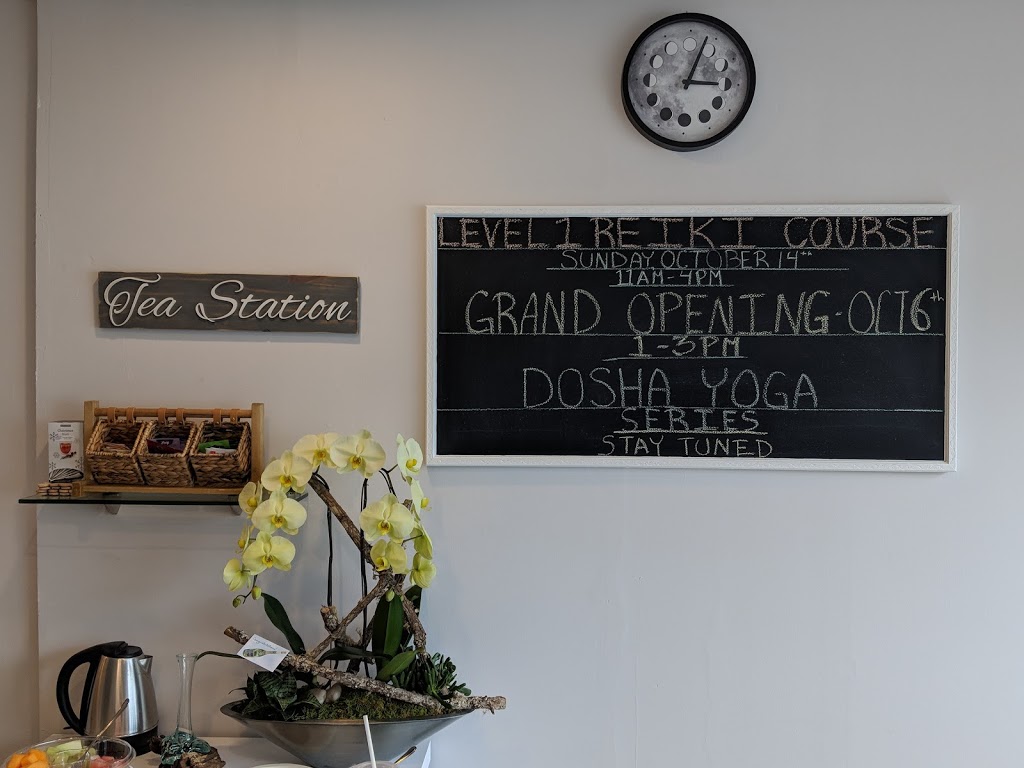 LEVEL 1 REIKI COURSE
SUNDAY, OCTOBER 14th
11AM-4PM
GRAND OPENING-OCT 6th
1-3PM
DOSHA YOGA
SERIES
STAY TUNED
Tea Station